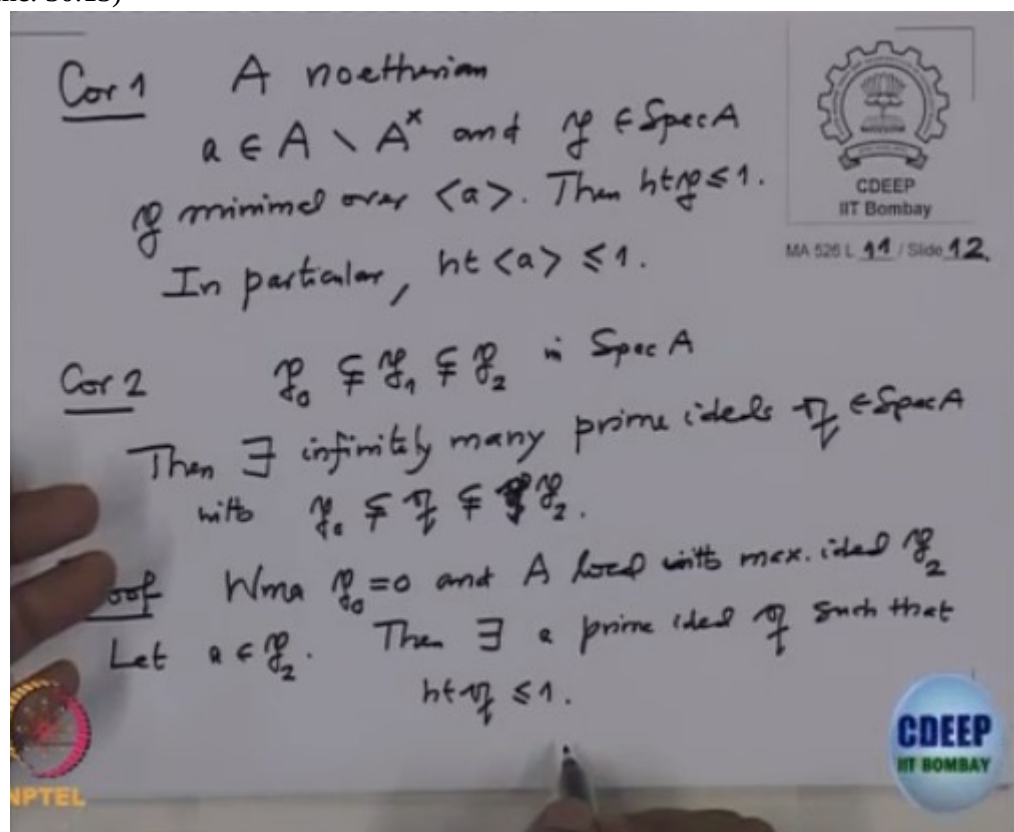 Cor 1 A noetherian
a ∈ A \ A^× and 𝔭 ∈ Spec A
𝔭 minimal over <a>. Then ht 𝔭 ≤ 1.
In particular, ht <a> ≤ 1.
CDEEP
IIT Bombay
MA 526 L 11 / Slide 12
Cor 2 𝔭₀ ⊊ 𝔭₁ ⊊ 𝔭₂ in Spec A
Then ∃ infinitely many prime ideals 𝔮 ∈ Spec A
with 𝔭₀ ⊊ 𝔮 ⊊ 𝔭₂.
Wma 𝔭₀ = 0 and A local with max. ideal 𝔭₂
Let a ∈ 𝔭₂. Then ∃ a prime ideal 𝔮 such that
ht 𝔮 ≤ 1.
NPTEL
CDEEP
IIT BOMBAY